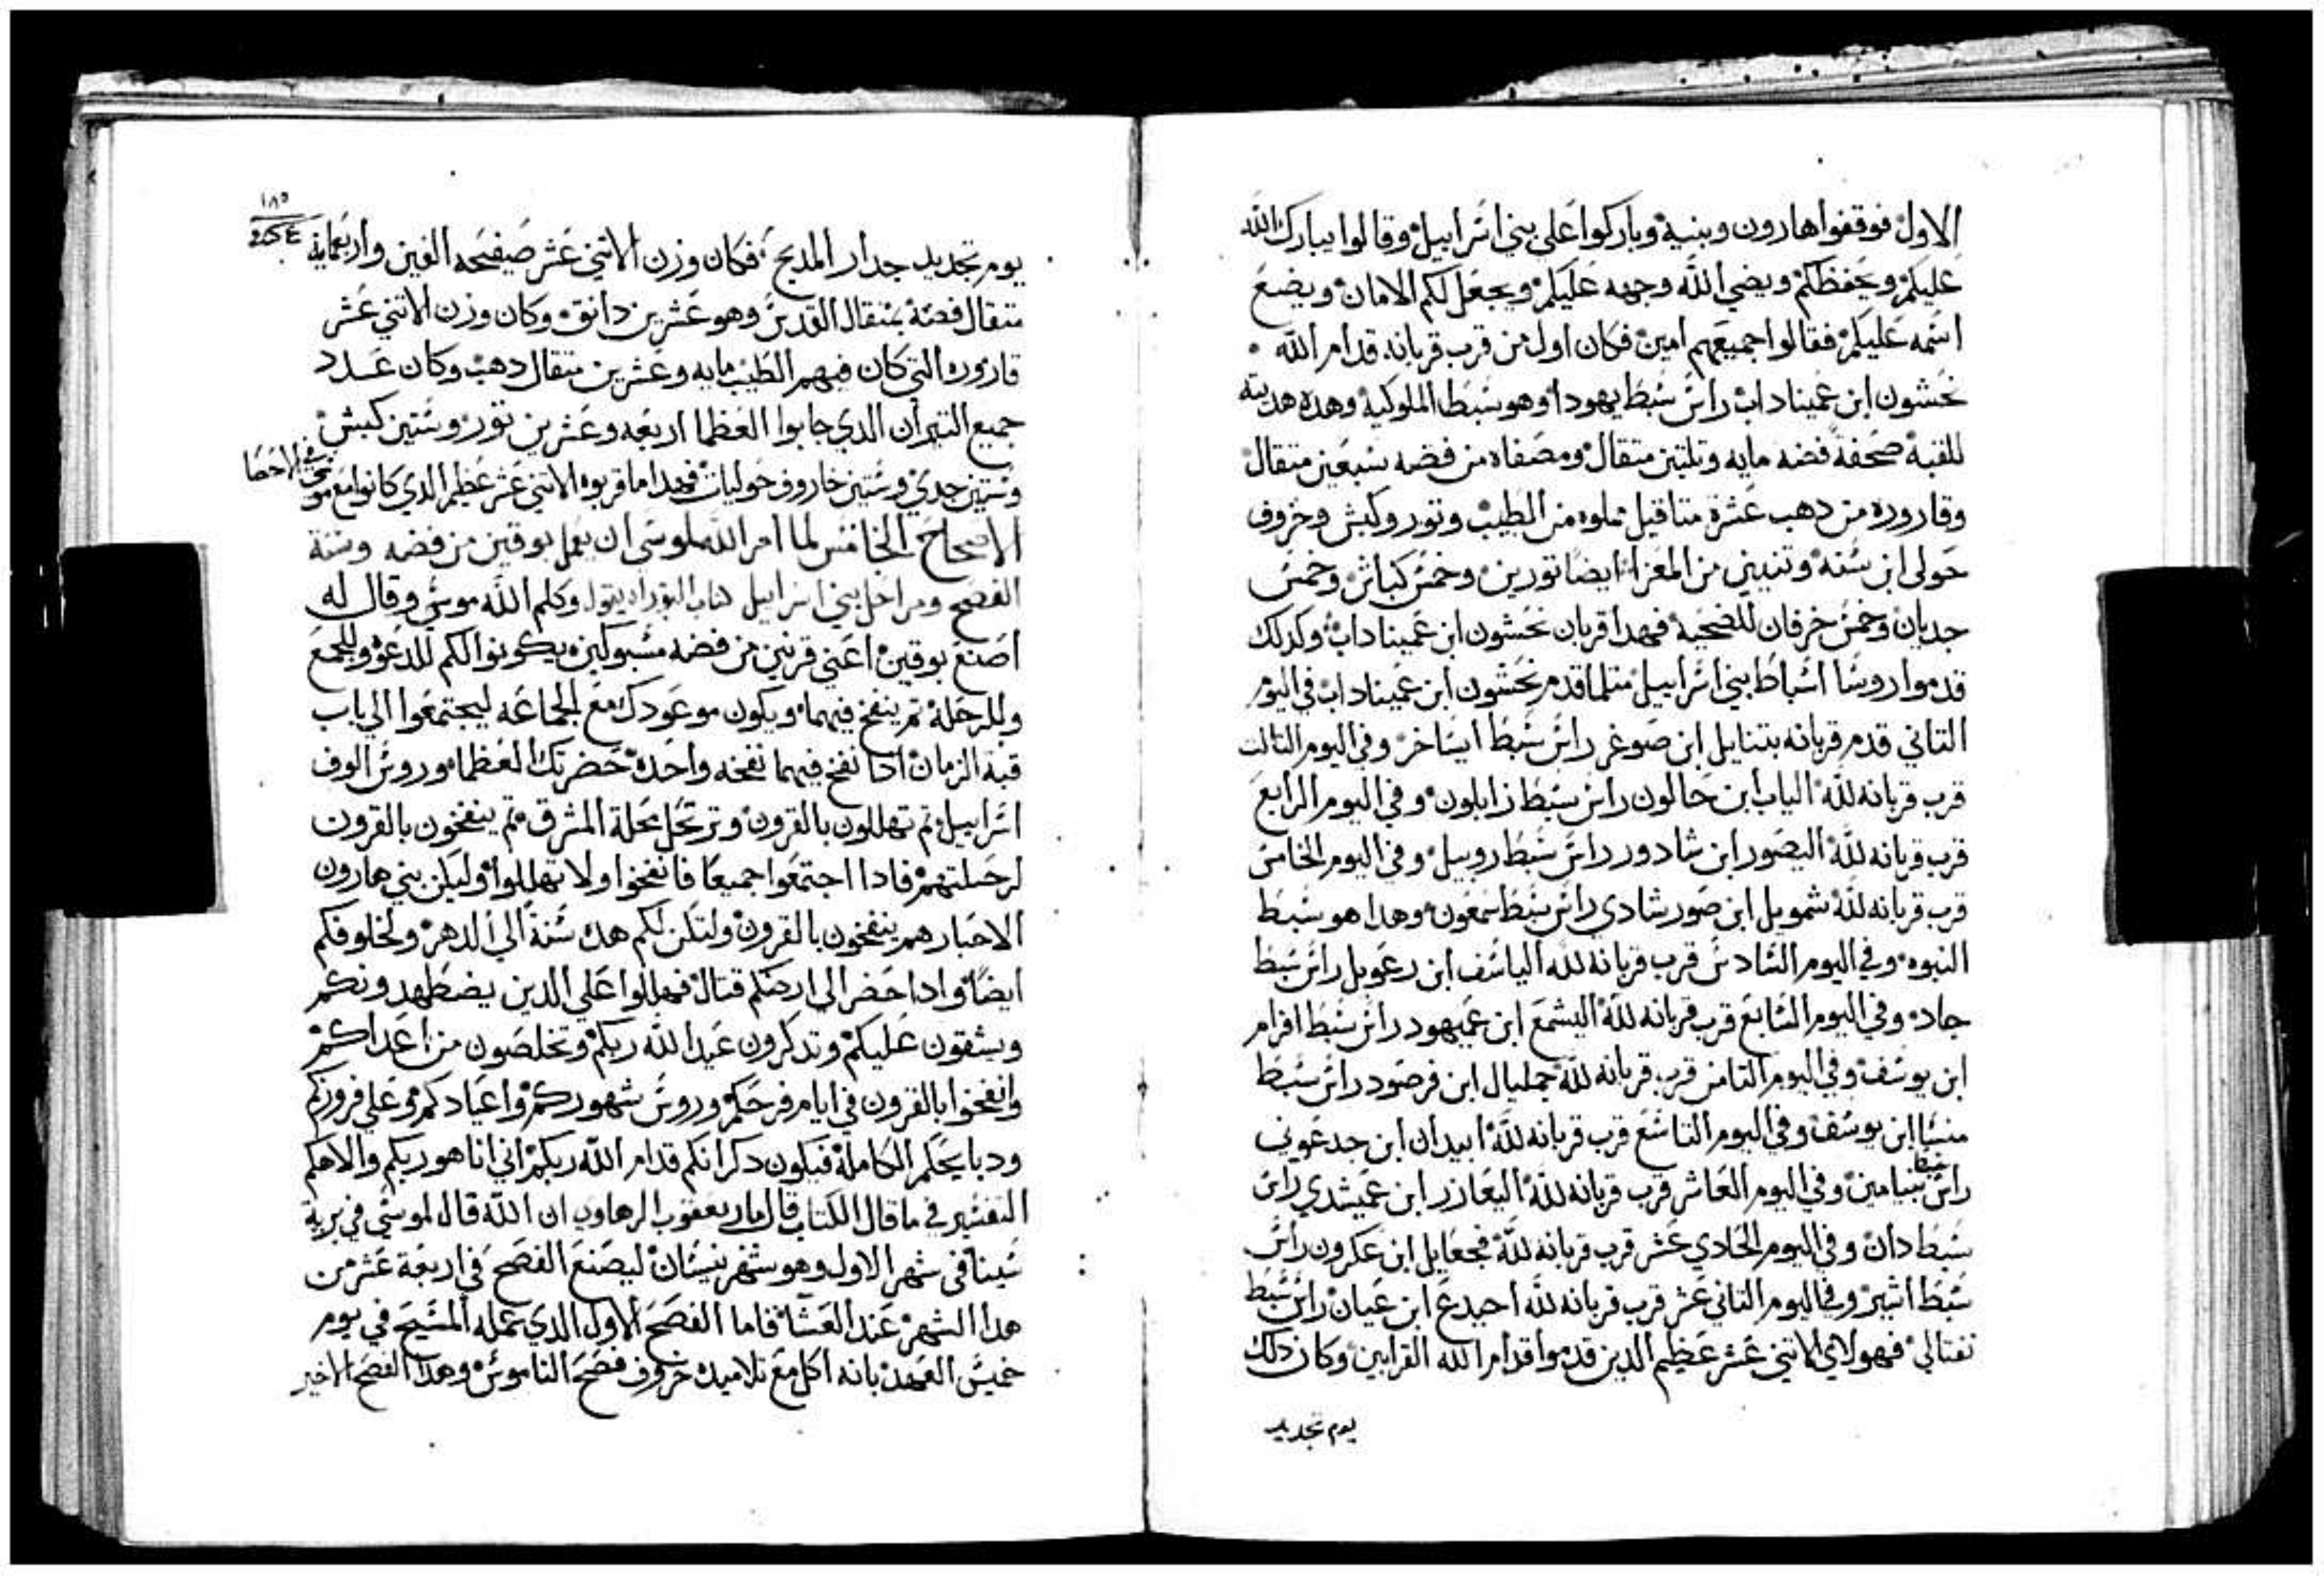 الاول فوقفوا هارون وبنيه وباركوا علي بني اسراييل وقالوا يبارك الله
عليكم ويحفظكم ويضي الله وجهه عليكم ويجعل لكم الامان ويضع
اسمه عليكم فقالوا جميعهم امين فكان اول من قرب قربانه قدام الله
نحشون ابن عميناداب راس سبط يهودا وهو سبط الملوكية وهده هديته
للقبة صحفة فضه مايه وتلتين متقال ومصفاه من فضه سبعين متقال
وقاروره من دهب عشرة متاقيل مملوه من الطيب وتور وكبش وخروف
حولى ابن سنه وتنيين من المعزا ايضا تورين وخمس كباش وخمس
جديان وخمس خرفان للضحية فهدا قربان نحشون ابن عميناداب وكدلك
قدموا روسا اسباط بني اسراييل متلما قدم نحشون ابن عميناداب في اليوم
التاني قدم قربانه بتنايل ابن صوغر راس سبط ايساخر وفي اليوم التالت
قرب قربانه لله الياب ابن حالون راس سبط زابلون وفي اليوم الرابع
قرب قربانه لله اليصور ابن شادور راس سبط روبيل وفي اليوم الخامس
قرب قربانه لله شمويل ابن صور شادي راس سبط سمعون وهدا هو سبط
النبوه وفي اليوم السادس قرب قربانه لله الياسف ابن رعويل راس سبط
جاد وفي اليوم السابع قرب قربانه لله اليشمع ابن عميهود راس سبط افرام
ابن يوسف وفي اليوم التامن قرب قربانه لله جمليال ابن فرصود راس سبط
منسا ابن يوسف وفي اليوم التاسع قرب قربانه لله ابيدان ابن جدعوني
راس سبط بنيامين وفي اليوم العاشر قرب قربانه لله اليعازر ابن عميشدي راس
سبط دان وفي اليوم الحادي عشر قرب قربانه لله فجعايل ابن عكرون راس
سبط اشير وفي اليوم التاني عشر قرب قربانه لله احيدع ابن عيان راس سبط
نفتالي فهولاي الاتني عشر عظيم الدين قدموا قدام الله القرابين وكان دلك
يوم تجديد
١٨٥
يوم تجديد جدار المدبح فكان وزن الاتني عشر صيفحه الفين واربعمايه
متقال فضة بمتقال القدس وهو عشرين دانق وكان وزن الاتني عشر
قاروره التي كان فيهم الطيب مايه وعشرين متقال دهب وكان عدد
جميع التيران الدي جابوا العظما اربعه وعشرين تور وستين كبش
وستين جدي وستين خاروف حوليات فهدا ما قربوه الاتني عشر عظيم الدي كانوا مع موسى في الاحصا
الاصحاح الخامس لما امر الله لموسى ان يعمل بوقين من فضه وسنة
الفصح ومراحل بني اسراييل كتاب التوراه يقول وكلم الله موسى وقال له
اصنع بوقين اعني قرنين من فضه مسبوكين يكونوا لكم للدعوه وللجمع
وللرحلة تم ينفخ فيهما ويكون موعودك مع الجماعه ليجتمعوا الي باب
قبة الزمان ادا نفخ فيهما نفخه واحدة حضرتك العظما وروس الوف
اسراييل تم تهللون بالقرون وترتحل محلة المشرق تم ينفخون بالقرون
لرحلتهم فادا اجتمعوا جميعا فانفخوا ولا تهللوا وليكن بني هارون
الاحبار هم ينفخون بالقرون ولتكن لكم هده سنة الي الدهر ولخلوفكم
ايضا وادا حضر الي ارضكم قتال فهللوا علي الدين يضطهدونكم
ويشقون عليكم وتدكرون عبد الله ربكم وتخلصون من اعداكم
وانفخوا بالقرون في ايام فرحكم وروس شهوركم واعيادكم وعلي فروزكم
ودبايحكم الكاملة فيكون دكرانكم قدام الله ربكم اني انا هو ربكم والاهكم
التفسير في ما قال الكتاب قال مار يعقوب الرهاوي ان الله قال لموسي في برية
سينا في شهر الاول وهو شهر نيسان ليصنع الفصح في اربعة عشر من
هدا الشهر عند العشا فاما الفصح الاول الدي عمله المسيح في يوم
خميس العهد بانه اكل مع تلاميده خروف فصح الناموس وهدا الفصح الاخير